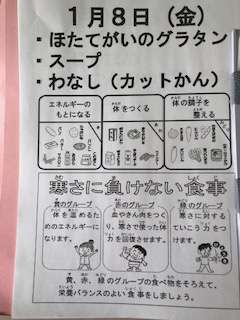 1月8日(金)
・ほたてがいのグラタン
・スープ
・わなし(カットかん)
エネルギーの
もとになる
体をつくる
体の調子を
整える
寒さに負けない食事
黄のグループ
体を温めるた
めのエネルギーに
なります。
赤のグループ
血やきん肉をつく
り、寒さで使った体
力を回復させます。
緑のグループ
寒さに対する
ていこう力をつ
けます。
黄、赤、緑のグループの食べ物をそろえて、
栄養バランスのよい食事をしましょう。